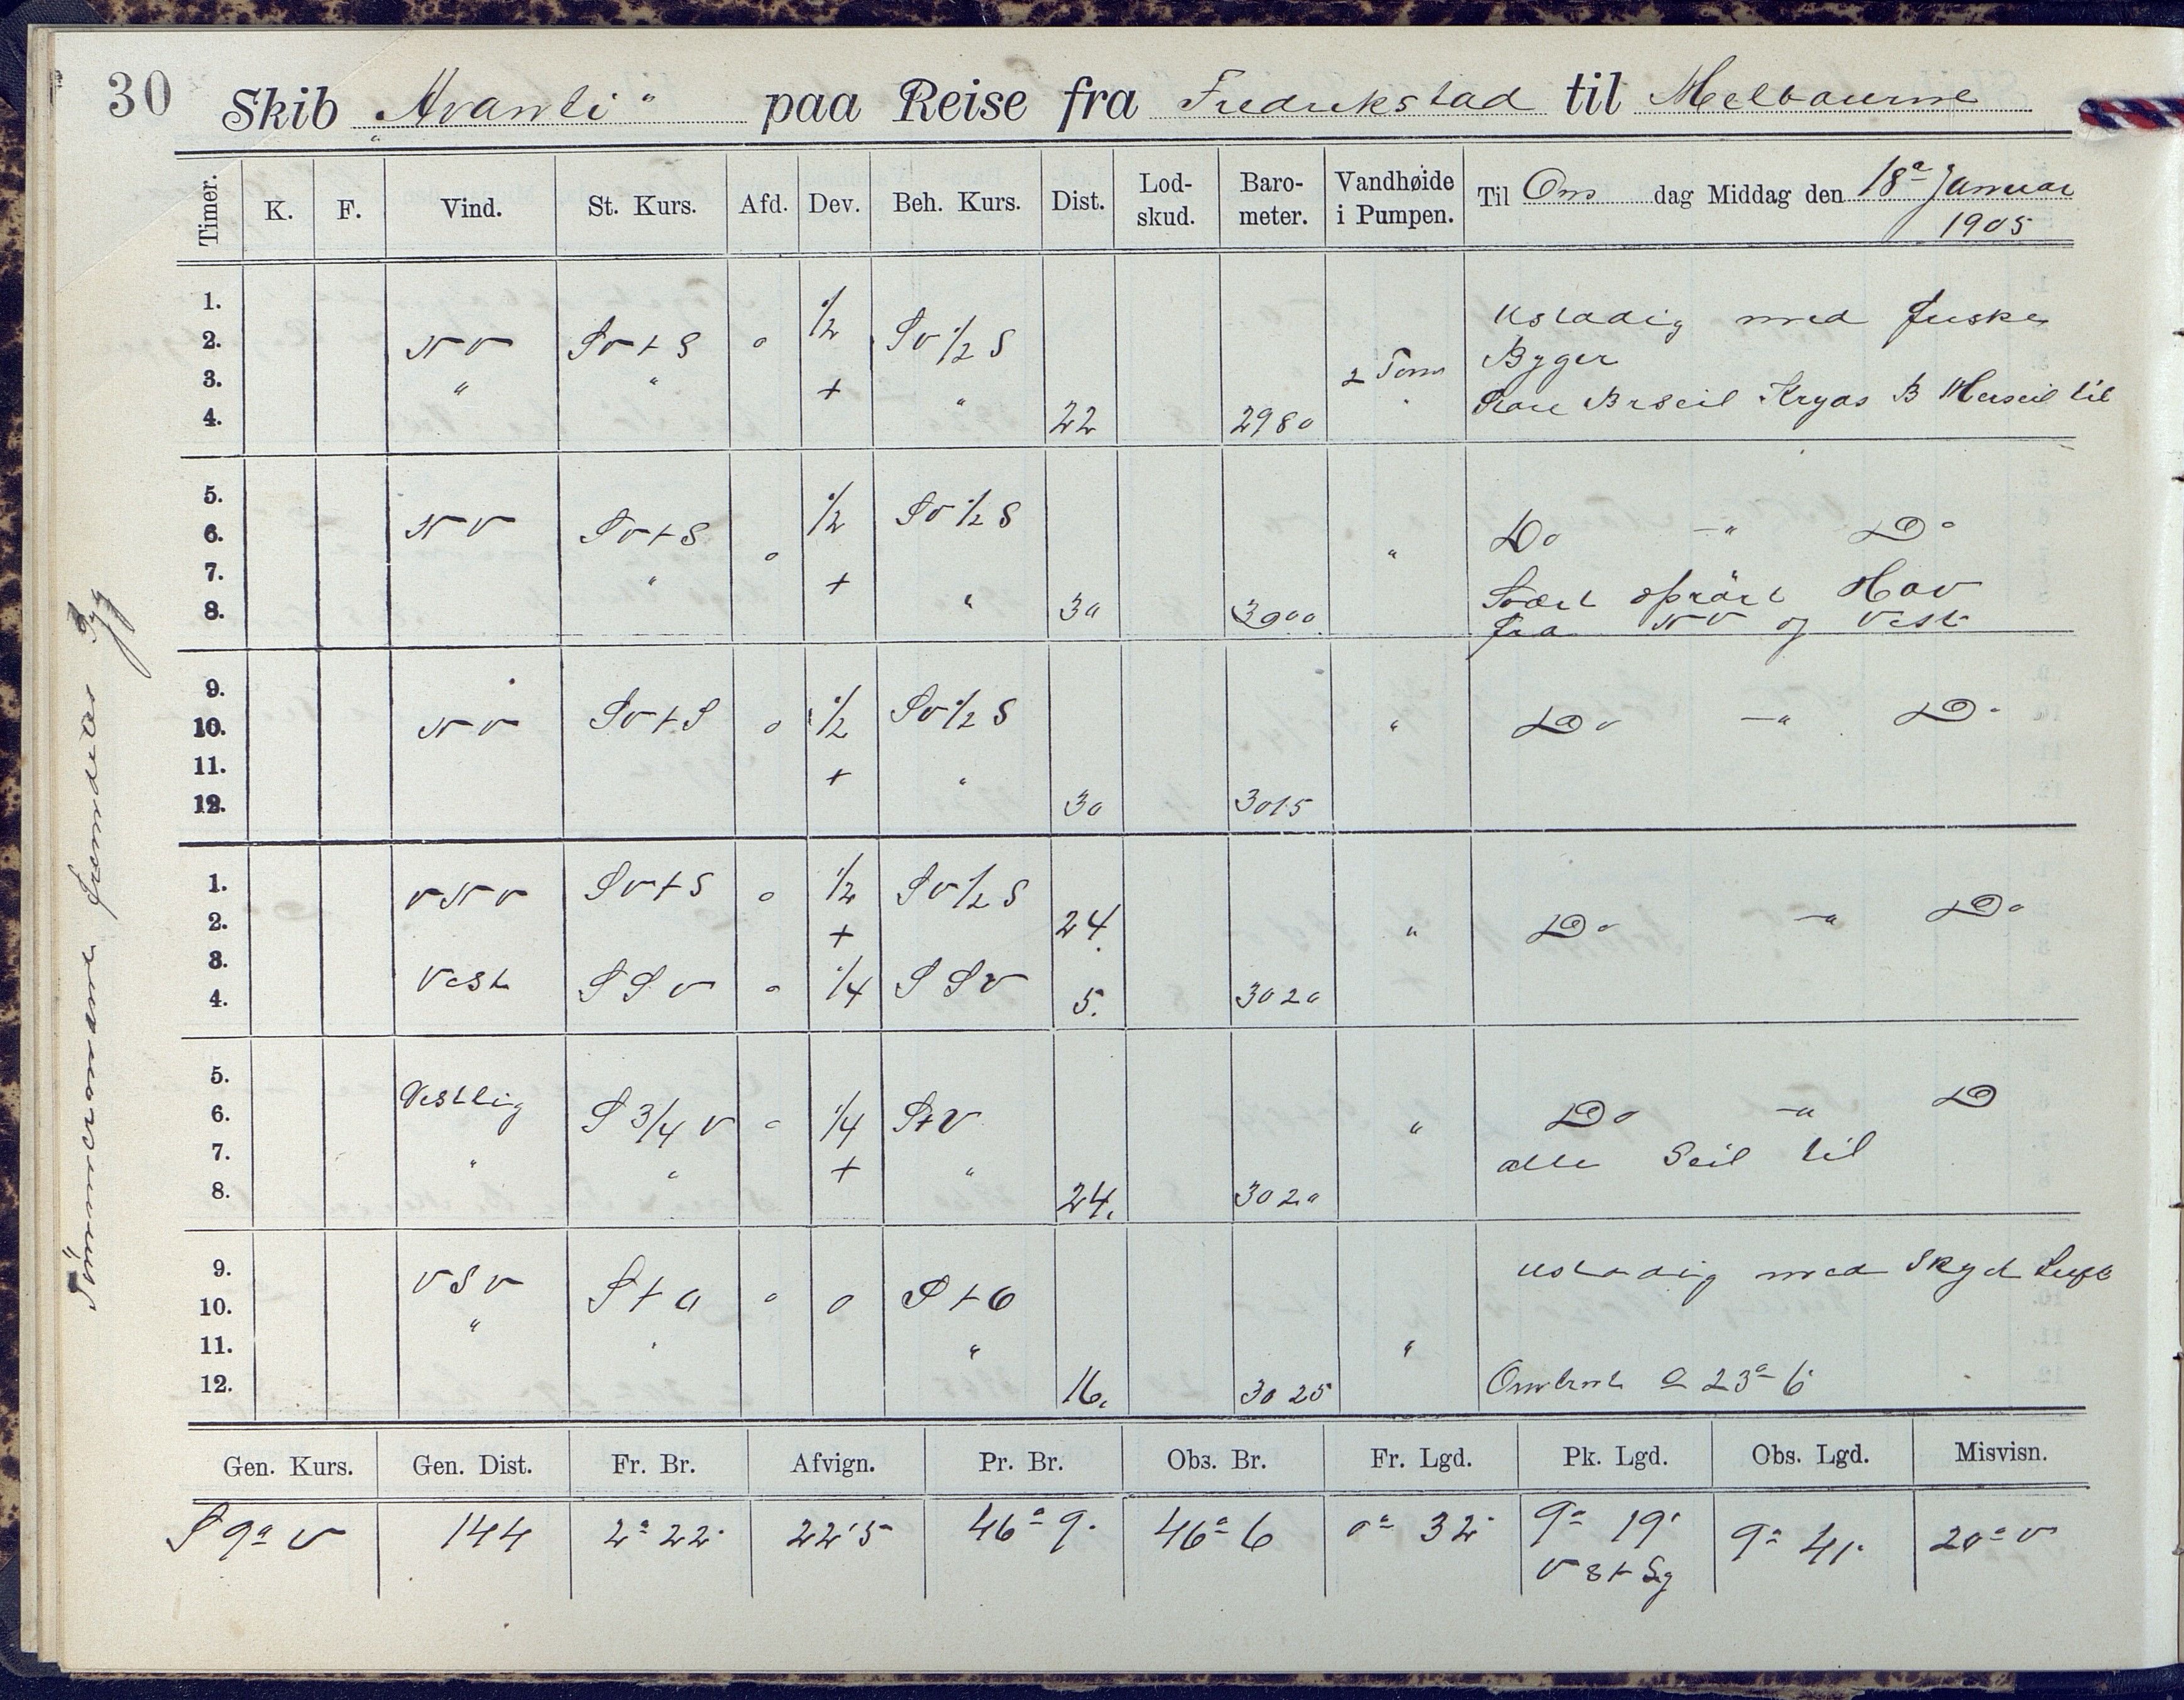 30
Skib „Avanti“ paa Reise fra Fredrikstad til Melbourne
Timer. K. F. Vind. St. Kurs. Afd. Dev. Beh. Kurs. Dist. Lod-skud. Baro-meter. Vandhøide i Pumpen. Til Ons dag Middag den 18de Januar 1905
1. 1/2 Ustadig med friske
2. NV SV t S 0 SV 1/2 S Byger
3. " " + " 2 Tom
4. 22 2980 B Merseil til
5. 1/2 SV 1/2 S
6. NV SV t S 0 " Do -"- Do
7. " + Svært oprört Hav
8. " 30 3000 fra NV og Vest
9. 1/2 SV 1/2 S
10. NV SV t S 0 " Do -"- Do
11. + "
12. 30 3015
1. VNV SV t S 0 1/2 SV 1/2 S
2. + 24. " Do -"- Do
3.
4. Vest SSV 0 1/4 SSV 5. 3020
5.
6. Vestlig S 3/4 V 0 1/4 S t V " Do -"- Do
7. " " + " alle Seil til
8. 24. 3020
9. VSV Ustadig med Skyet Luft
10. " S t O 0 0 S t O
11. " " "
12. 16. 3025
Gen. Kurs. Gen. Dist. Fr. Br. Afvign. Pr. Br. Obs. Br. Fr. Lgd. Pk. Lgd. Obs. Lgd. Misvisn.
S 9° V 144 2° 22' 22'5 46° 9' 46° 6 0° 32' 9° 19' 9° 41' 20° V
Tömmermanden Syg